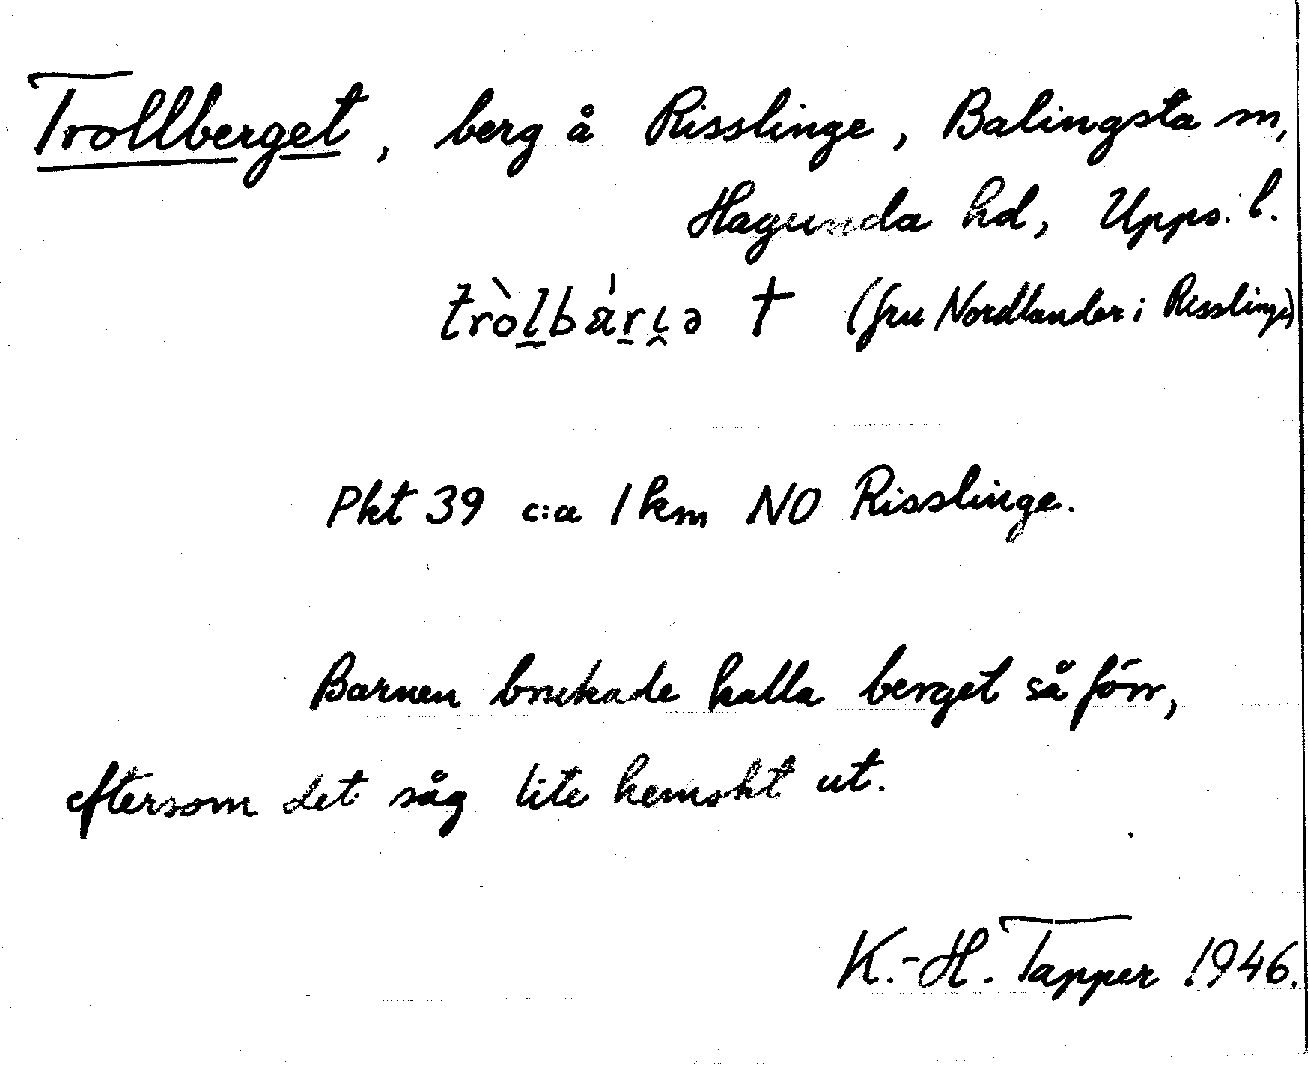 Trollberget, berg å Risslinge, Balingsta sn,
Hagunda hd, Upps. l.
tròl̠bá̈r̠i̭ə † (fru Nordlander i Risslinge)
Pkt 39 c:a 1 km NO Risslinge.
Barnen brukade kalla berget så förr,
eftersom det såg lite hemskt ut.
K.-H. Tapper 1946.